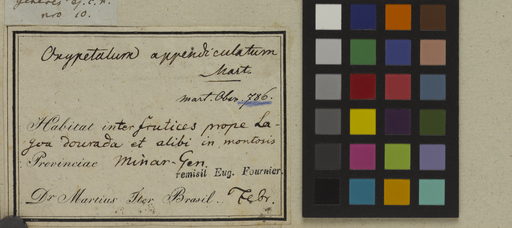 genères of. C. R.
nro 10.
Oxypetalum appendiculatum
Mart.
Mart. Obs. 786.
Habitat inter frutices prope La-
goa dourada et alibi in montosis
Provinciae Minar-Gen.
remisit Eug. Fournier.
Dr Martius Iter Brasil. Febr.